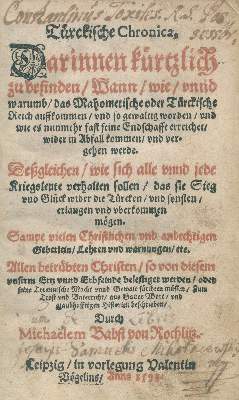 Türckische Chronica,
Darinnen kürtzlich
zu befinden / Wann / wie / vnnd
warumb / das Mahometische oder Türckische
Reich auffkommen / vnd so gewaltig worden / vnd
wie es nunmehr fast seine Endschafft erreichet /
wider in Abfall kommen / vnd ver-
gehen werde.
Deßgleichen / wie sich alle vnnd jede
Kriegsleute verhalten sollen / das sie Sieg
vnd Glück wider die Türcken / vnd sonsten /
erlangen vnd vberkommen
mögen.
Sampt vielen Christlichen vnd andechtigen
Gebeten / Lehren vnd warnungen / etc.
Allen betrübten Christen / so von diesem
vnserm Ertz vnnd Erbfeinde belestiget werden / oder
seine Tyrannische Macht vnnd Gewalt fürchten müssen / Zum
Trost vnd Unterricht / aus Gottes Wort / vnd
glaubhafftigen Historien beschrieben /
Durch
Michaelem Babst von Rochlitz.
Leipzig / in vorlegung Valentin
Vögelins / Anno 1593.